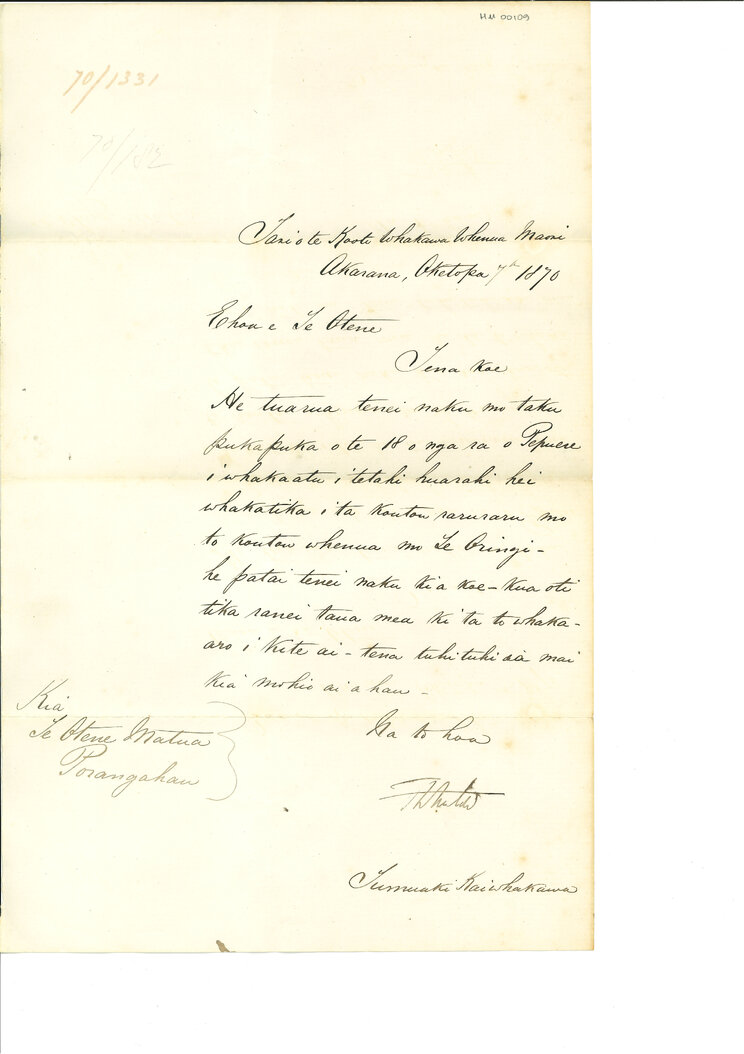 MM 00109
70/1331
70/182
Tari o te Kooti Whakawa Whenua Maori
Akarana, Oketopa 7th 1870
E hoa e Te Otene
Tena koe
He tuarua tenei naku mo taku
pukapuka o te 18 o nga ra o Pepuere
i whakaatu i tetahi huarahi hei
whakatika i ta koutou raruraru mo
to koutou whenua mo Te Oringi -
he patai tenei naku ki a koe - kua oti
tika ranei taua mea ki ta to whaka-
aro i kite ai - tena tuhituhia mai
kia mohio ai a hau -
Na to hoa
Tumuaki Kaiwhakawa
Kia
Te Otene Matua
Porangahau